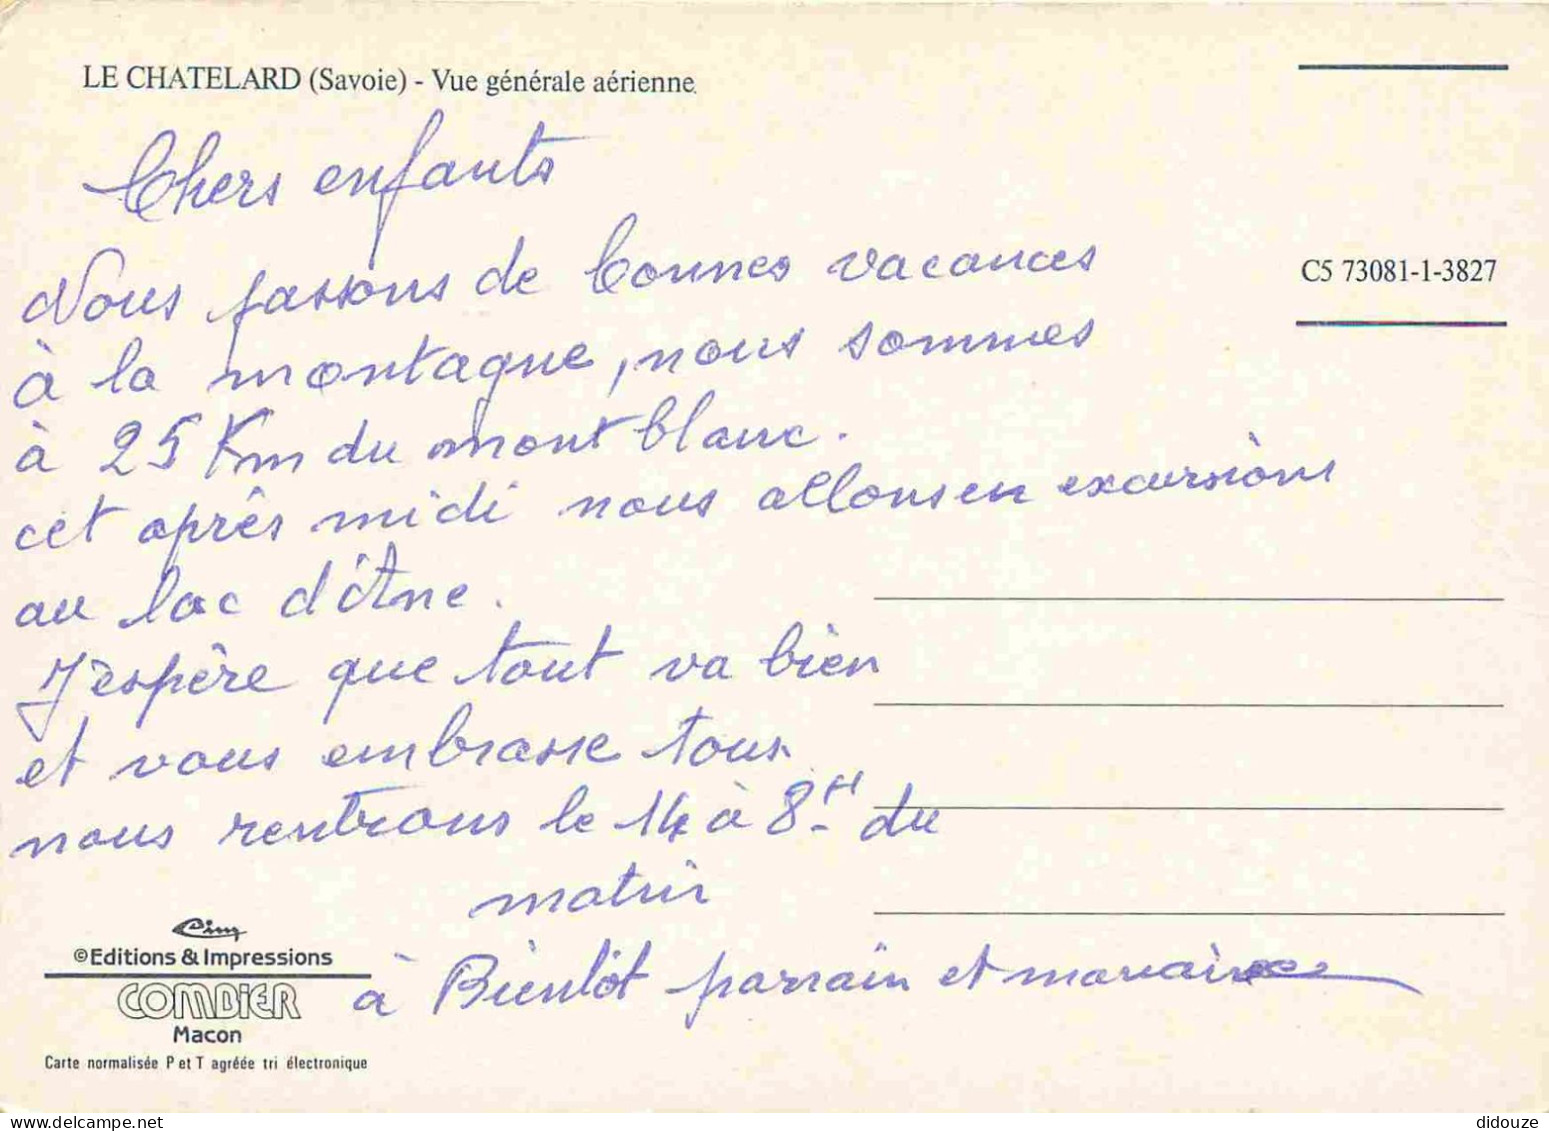 LE CHATELARD (Savoie) - Vue générale aérienne
Chers enfants
Nous passons de bonnes vacances
à la montagne, nous sommes
à 25 Km du mont blanc.
cet après midi nous allons en excursions
au lac d'Ane.
J'espère que tout va bien
et vous embrasse tous
nous rentrons le 14 à 8H du
matin
à Bientôt parrain et marraine
C5 73081-1-3827
Cim
©Editions & Impressions
COMBIER
Macon
Carte normalisée P et T agréée tri électronique
didouze